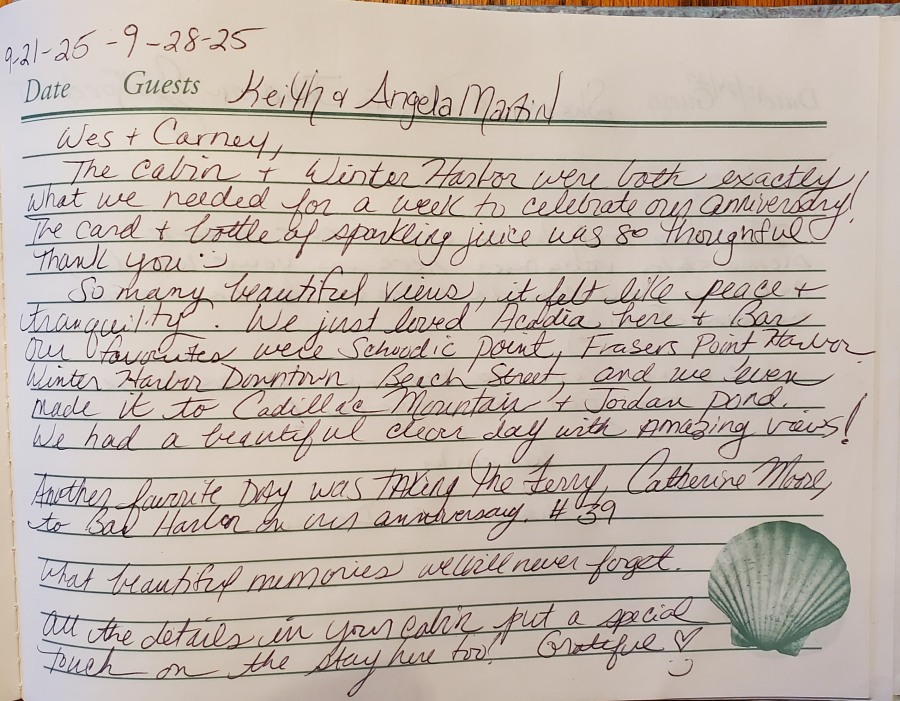 9-21-25 - 9-28-25
Date Guests Keith & Angela Martin
Wes + Carney,
The cabin + Winter Harbor were both exactly
what we needed for a week to celebrate our anniversary!
The card + bottle of sparkling juice was so thoughtful.
Thank you :)
So many beautiful views, it felt like peace +
tranquility. We just loved Acadia here + Bar
Harbor.
Our favorites were Schoodic point, Frasers Point,
Winter Harbor Downtown, Beach Street, and we even
made it to Cadillac Mountain + Jordan pond.
We had a beautiful clear day with Amazing views!
Another favorite DAY was TAKING the Ferry, Catherine Moore,
to Bar Harbor on our anniversary. #39
What beautiful memories we will never forget.
All the details in your cabin put a special
touch on the stay here too! Grateful ♡
:)